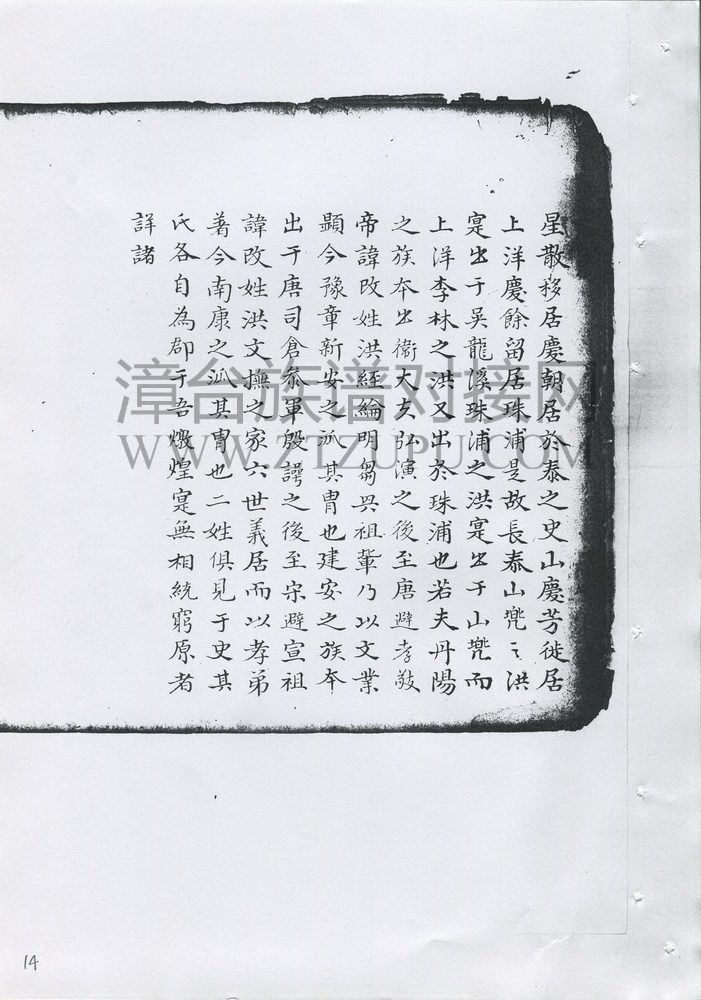 星散移居慶朝居於泰之史山慶芳徙居
上洋慶餘留居珠浦是故長泰山兠之洪
寔出于吳龍溪珠浦之洪寔出于山兠而
上洋李林之洪又出於珠浦也若夫丹陽
之族本出衛大夫弘演之後至唐避孝敬
帝諱改姓洪經綸明芻與祖輩乃以文業
顯今豫章新安之派其胄也建安之族本
出于唐司倉叅軍殷諤之後至宋避宣祖
諱改姓洪文撫之家六世義居而以孝弟
著今南康之派其胄也二姓俱見于史其
氏各自為郡于吾燉煌寔無相統窮原者
詳諸
漳台族谱对接网
WWW.ZTZUPU.COM
14